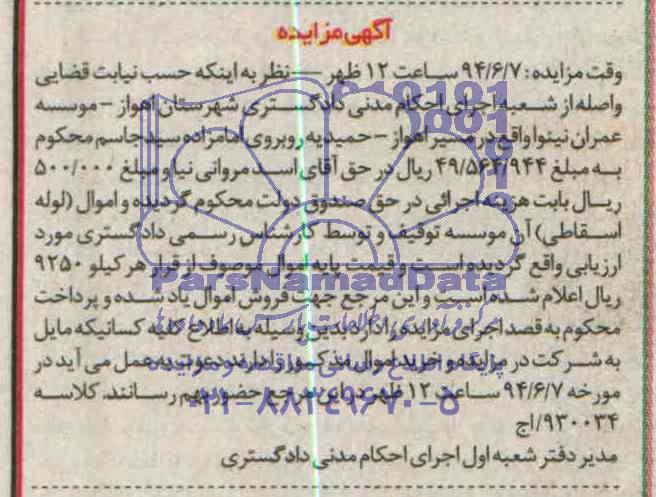 آگهی مزایده
وقت مزایده: ۹۴/۶/۷ ساعت ۱۲ ظهر - نظر به اینکه حسب نیابت قضایی
واصله از شعبه اجرای احکام مدنی دادگستری شهرستان اهواز - موسسه
عمران نینوا واقع در مسیر اهواز - حمیدیه روبروی امامزاده سیدجاسم محکوم
به مبلغ ۴۹/۵۶۴/۹۴۴ ریال در حق آقای اسد مروانی نیا و مبلغ ۵۰۰/۰۰۰
ریال بابت هزینه اجرائی در حق صندوق دولت محکوم گردیده و اموال (لوله
اسقاطی) آن موسسه توقیف و توسط کارشناس رسمی دادگستری مورد
ارزیابی واقع گردیده است و قیمت پایه اموال موصوف از قرار هر کیلو ۹۲۵۰
ریال اعلام شده است و این مرجع جهت فروش اموال یاد شده و پرداخت
محکوم به قصد اجرای مزایده را دارد بدین وسیله به اطلاع کلیه کسانیکه مایل
به شرکت در مزایده و خرید اموال مذکور را دارند دعوت به عمل می آید در
مورخه ۹۴/۶/۷ ساعت ۱۲ ظهر در این مرجع حضور بهم رسانند. کلاسه
۹۳۰۰۳۴/اج
مدیر دفتر شعبه اول اجرای احکام مدنی دادگستری
ParsNamadData
پایگاه اطلاع رسانی مناقصه و مزایده
۰۲۱-۸۸۳۴۹۶۷۰-۵